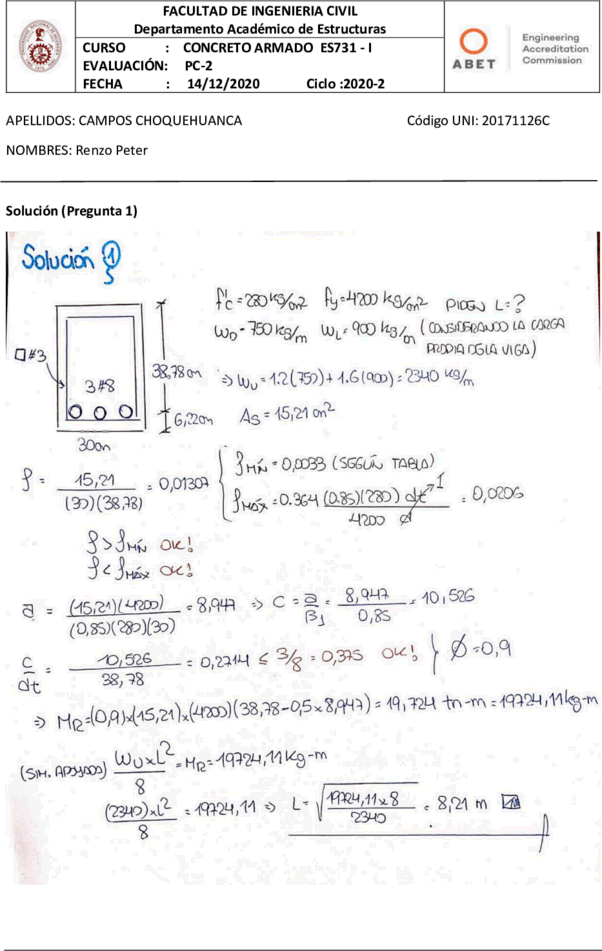 FACULTAD DE INGENIERIA CIVIL
Departamento Académico de Estructuras
CURSO : CONCRETO ARMADO ES731 - I
EVALUACIÓN: PC-2
FECHA : 14/12/2020 Ciclo :2020-2
ABET
Engineering
Accreditation
Commission
APELLIDOS: CAMPOS CHOQUEHUANCA Código UNI: 20171126C
NOMBRES: Renzo Peter
Solución (Pregunta 1)
Solución 1
f'c = 280 kg/cm2 fy = 4200 kg/cm2 PIDEN L = ?
WD = 750 kg/m WL = 900 kg/m (CONSIDERANDO LA CARGA PROPIA DE LA VIGA)
⇒ Wu = 1.2(750) + 1.6(900) = 2340 kg/m
As = 15,21 cm2
□#3
3#8
38,78 cm
6,22cm
30cm
ρ = 15,21 / (30)(38,78) = 0,01307
ρMÍN = 0,0033 (SEGÚN TABLA)
ρMÁX = 0.364 (0.85)(280) dt / 4200 d = 0,0206
1
ρ > ρMÍN OK!
ρ < ρMÁX OK!
a = (15,21)(4200) / (0,85)(280)(30) = 8,947 ⇒ C = a/β1 = 8,947 / 0,85 = 10,526
c/dt = 10,526 / 38,78 = 0,2714 ≤ 3/8 = 0,375 OK! } Ø = 0,9
⇒ MR = (0,9)x(15,21)x(4200)(38,78 - 0,5 x 8,947) = 19,724 tn-m = 19724,11 kg-m
(SIM. APOYADO) Wu x L2 / 8 = MR = 19724,11 Kg-m
(2340) x L2 / 8 = 19724,11 ⇒ L = √(19724,11 x 8 / 2340) = 8,21 m